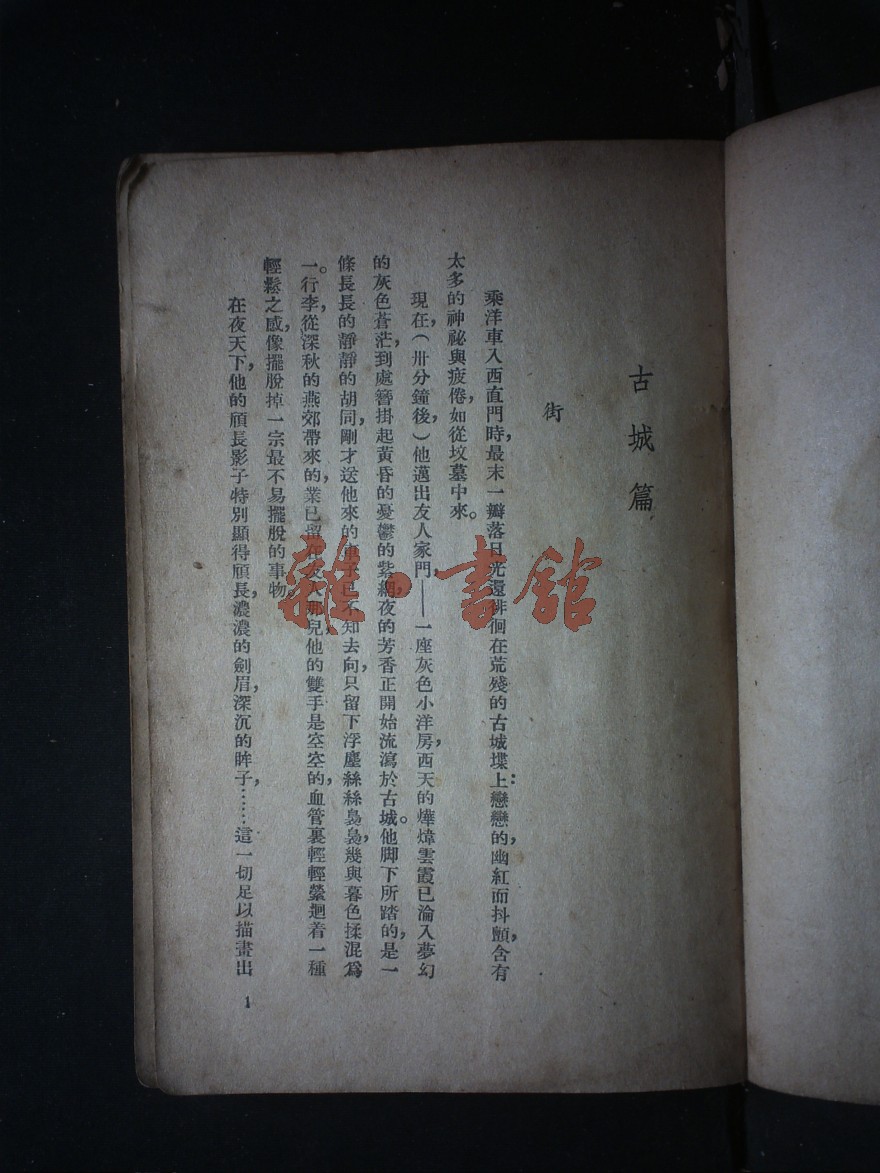 古城篇
街
乘洋車入西直門時，最末一瓣落日光還徘徊在荒殘的古城堞上：戀戀的，幽紅而抖顫，含有
太多的神祕與疲倦，如從墳墓中來。
現在，（卅分鐘後，）他邁出友人家門，——一座灰色小洋房，西天的燁煒雲霞已淪入夢幻
的灰色蒼茫，到處簪掛起黃昏的憂鬱的紫綢，夜的芳香正開始流瀉於古城。他脚下所踏的，是一
條長長的靜靜的胡同，剛才送他來的車子已不知去向，只留下浮塵絲絲裊裊，幾與暮色揉混爲
一。行李，從深秋的燕郊帶來的，業已留在友人那兒，他的雙手是空空的，血管裏輕輕縈迴着一種
輕鬆之感，像擺脫掉一宗最不易擺脫的事物。
在夜天下，他的頎長影子特別顯得頎長，濃濃的劍眉，深沉的眸子，……這一切足以描畫出
1
雜·書館